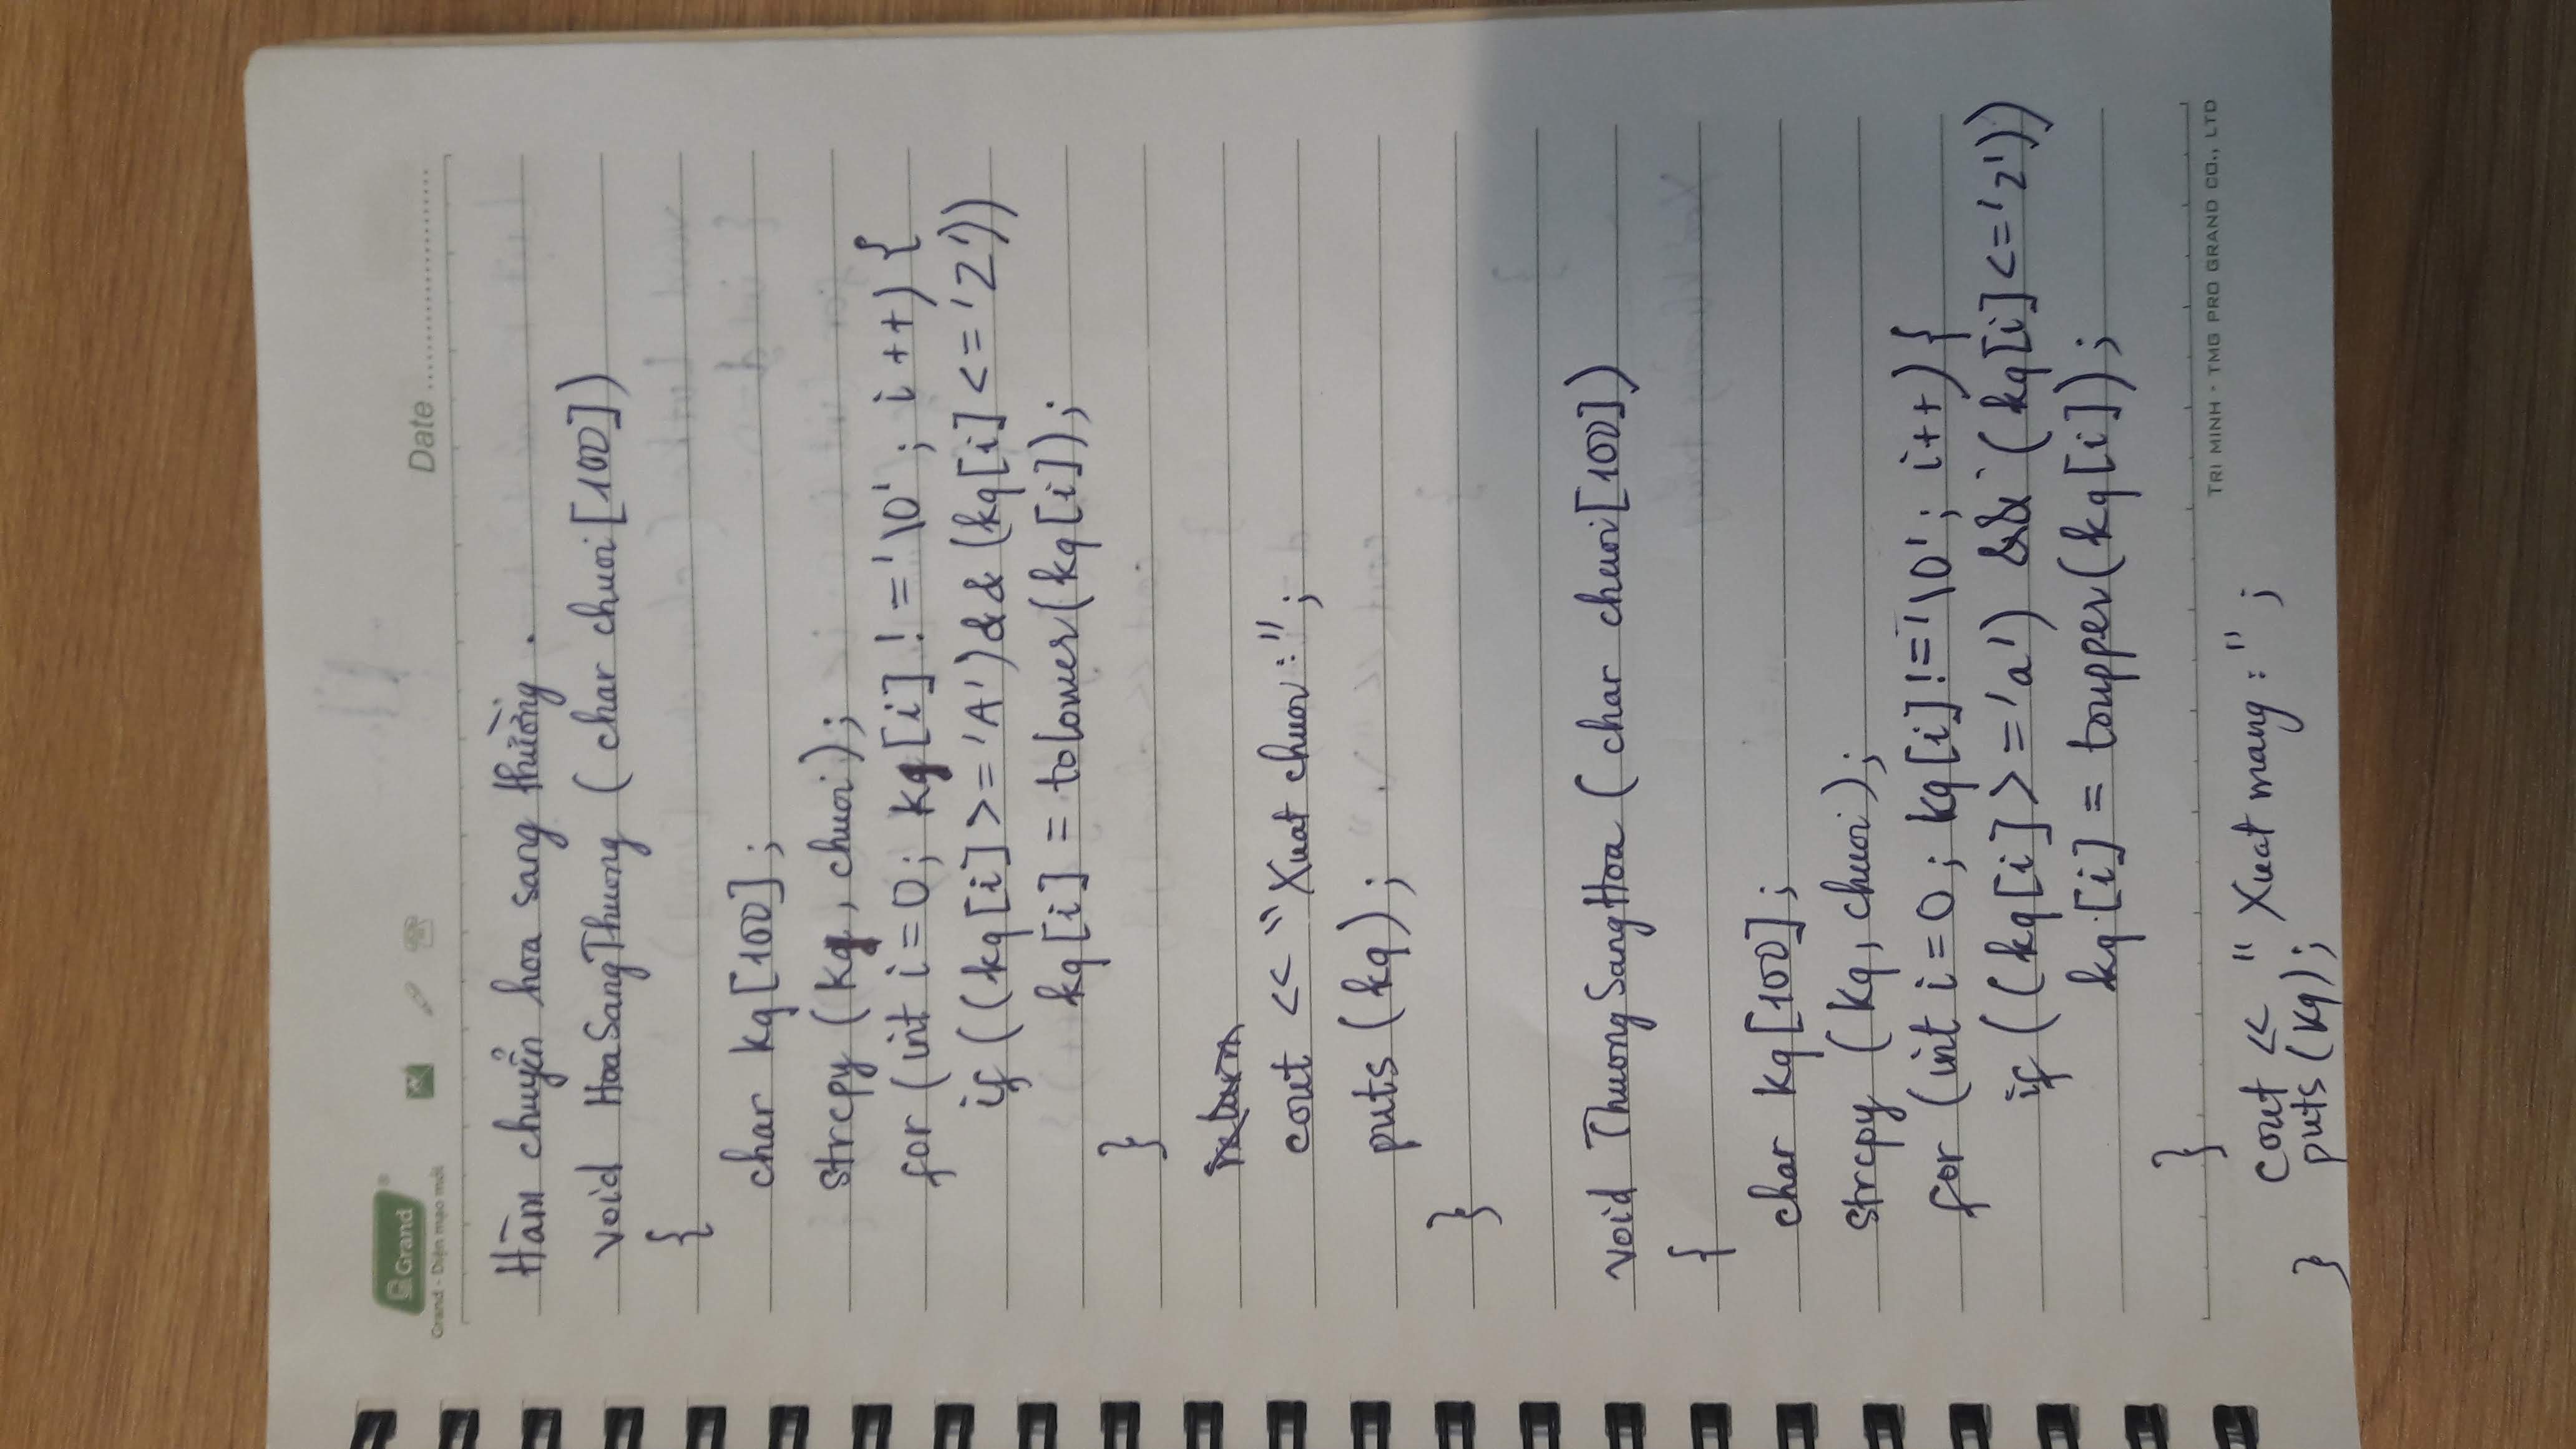 Grand
Grand - Diện mạo mới
Date
Hàm chuyển hoa sang thường.
void HoaSangThuong (char chuoi[100])
{
char kq[100];
strcpy (kq, chuoi);
for (int i=0; kq[i] != '\0'; i++) {
if ((kq[i] >= 'A') && (kq[i] <= 'Z'))
kq[i] = tolower(kq[i]);
}
return
cout << "Xuat chuoi:";
puts (kq);
}
void ThuongSangHoa (char chuoi[100])
{
char kq[100];
strcpy (kq, chuoi);
for (int i=0; kq[i] != '\0'; i++) {
if ((kq[i] >= 'a') && (kq[i] <= 'z'))
kq[i] = toupper(kq[i]);
}
TRI MINH - TMG PRO GRAND CO., LTD
cout << "Xuat mang:";
} puts (kq);